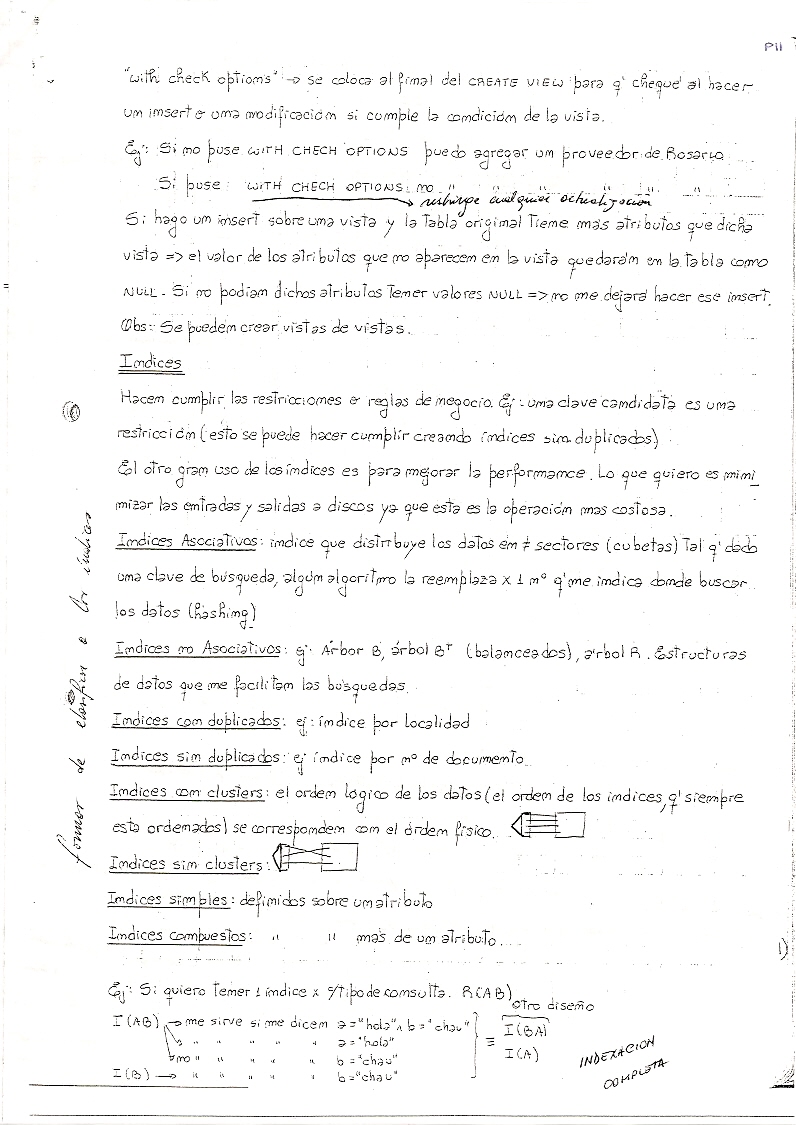 P11
"with check options" → se coloca al final del CREATE VIEW para q' chequé al hacer
un insert o una modificación si cumple la condición de la vista.
Ej: Si no puse WITH CHECH OPTIONS puedo agregar un proveedor de Rosario
Si puse: WITH CHECH OPTIONS no " " " " " "
→ restringe cualquier actualización
Si hago un insert sobre una vista y la tabla original tiene más atributos que dicha
vista => el valor de los atributos que no aparecen en la vista quedarán en la tabla como
NULL. Si no podían dichos atributos tener valores NULL => no me dejará hacer ese insert.
Obs: Se pueden crear vistas de vistas.
Indices
Hacen cumplir las restricciones o reglas de negocio. Ej: una clave candidata es una
restricción (esto se puede hacer cumplir creando índices sin duplicados)
El otro gran uso de los índices es para mejorar la performance. Lo que quiero es mini
mizar las entradas y salidas a discos ya que esta es la operación más costosa.
Indices Asociativos: índice que distribuye los datos en ≠ sectores (cubetas) tal q' dado
una clave de búsqueda, algún algoritmo la reemplaza x 1 nº q' me indica donde buscar
los datos (hashing)
Indices no Asociativos: ej: Árbor B, árbol B+ (balanceados), árbol R. Estructuras
de datos que me facilitan las búsquedas.
Indices con duplicados: ej: índice por localidad
Indices sin duplicados: ej índice por nº de documento
Indices con clusters: el orden lógico de los datos (el orden de los indices, q' siempre
esta ordenados) se corresponden con el órden físico.
Indices sin clusters:
Indices simples: definidos sobre un atributo
Indices compuestos: " " más de un atributo...
formas de clasificar a los índices
1)
Ej: Si quiero tener 1 índice x c/tipo de consulta. R(AB)
otro diseño
I(AB) → me sirve si me dicen a="hola" ∧ b="chau"
" " " " " a="hola"
no " " " " " b="chau"
I(B) → " " " " b="chau"
≡ I(BA)
I(A)
INDEXACION
COMPLETA